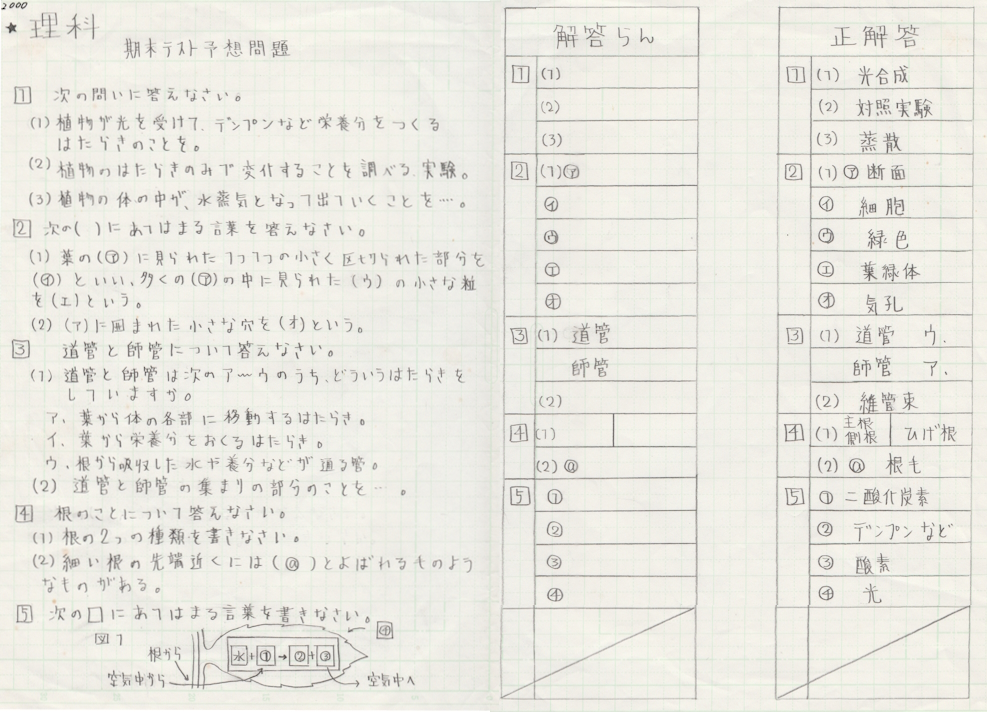 2000
★理科
期末テスト予想問題
1 次の問いに答えなさい。
(1) 植物が光を受けて、デンプンなど栄養分をつくる
はたらきのことを。
(2) 植物のはたらきのみで変化することを調べる実験。
(3) 植物の体の中が、水蒸気となって出ていくことを…。
2 次の( )にあてはまる言葉を答えなさい。
(1) 葉の(㋐)に見られた1つ1つの小さく区切られた部分を
(㋑)といい、多くの(㋐)の中に見られた(ウ)の小さな粒
を(エ)という。
(2) (ア)に囲まれた小さな穴を(オ)という。
3 道管と師管について答えなさい。
(1) 道管と師管は次のア〜ウのうち、どういうはたらきを
していますか。
ア、葉から体の各部に移動するはたらき。
イ、葉から栄養分をおくるはたらき。
ウ、根から吸収した水や養分などが通る管。
(2) 道管と師管の集まりの部分のことを…。
4 根のことについて答えなさい。
(1) 根の2つの種類を書きなさい。
(2) 細い根の先端近くには(ⓐ)とよばれるもののよう
なものがある。
5 次の□にあてはまる言葉を書きなさい。
図1
④
根から
水+①→②+③
空気中から
空気中へ
解答らん
1 (1)
(2)
(3)
2 (1)㋐
㋑
㋒
㋓
㋔
3 (1) 道管
師管
(2)
4 (1)
(2) ⓐ
5 ①
②
③
④
正解答
1 (1) 光合成
(2) 対照実験
(3) 蒸散
2 (1) ㋐ 断面
㋑ 細胞
㋒ 緑色
㋓ 葉緑体
㋔ 気孔
3 (1) 道管 ウ.
師管 ア.
(2) 維管束
4 (1) 主根 側根 ひげ根
(2) ⓐ 根毛
5 ① 二酸化炭素
② デンプンなど
③ 酸素
④ 光